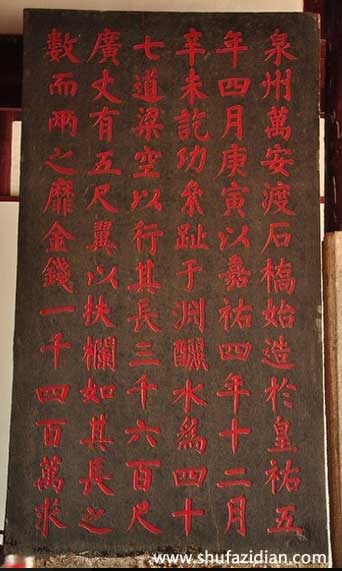 泉州萬安渡石橋始造於皇祐五
年四月庚寅以嘉祐四年十二月
辛未訖功絫趾于淵釃水為四十
七道梁空以行其長三千六百尺
廣丈有五尺翼以扶欄如其長之
數而兩之靡金錢一千四百萬求
www.shufazidian.com